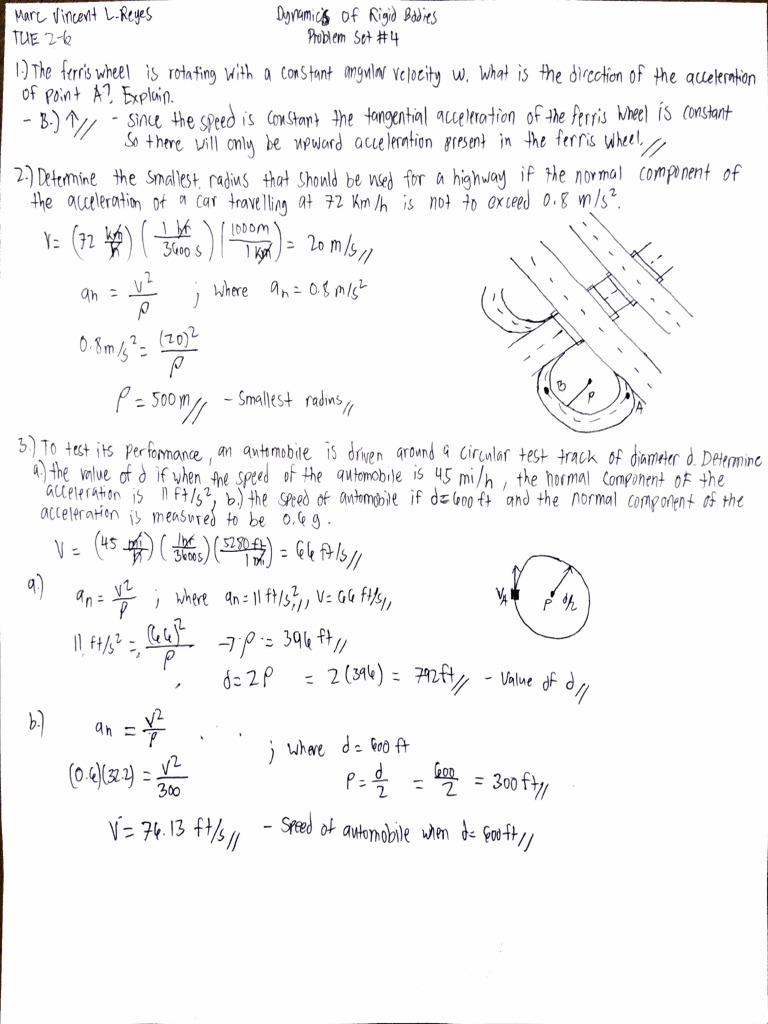 Marc Vincent L. Reyes
Dynamics of Rigid Bodies
TUE 2-6
Problem Set #4
1.) The ferris wheel is rotating with a constant angular velocity ω. What is the direction of the acceleration
of point A? Explain.
- B.) ↑// - since the speed is constant the tangential acceleration of the ferris wheel is constant
so there will only be upward acceleration present in the ferris wheel.//
2.) Determine the smallest radius that should be used for a highway if the normal component of
the acceleration of a car travelling at 72 km/h is not to exceed 0.8 m/s².
V = (72 km/h) (1 hr/3600 s) (1000m/1 km) = 20 m/s//
an = V²/ρ ; where an = 0.8 m/s²
0.8 m/s² = (20)²/ρ
ρ = 500 m// - Smallest radius//
B ρ A
3.) To test its performance, an automobile is driven around a circular test track of diameter d. Determine
a.) the value of d if when the speed of the automobile is 45 mi/h, the normal component of the
acceleration is 11 ft/s², b.) the speed of automobile if d = 600 ft and the normal component of the
acceleration is measured to be 0.6g.
V = (45 mi/h) (1 hr/3600s) (5280 ft/1 mi) = 66 ft/s//
a.) an = V²/ρ ; where an = 11 ft/s²,// V = 66 ft/s//
VA ρ d/2
11 ft/s² = (66)²/ρ → ρ = 396 ft//
d = 2ρ = 2(396) = 792 ft// - Value of d//
b.) an = V²/ρ
; where d = 600 ft
(0.6)(32.2) = V²/300
ρ = d/2 = 600/2 = 300 ft//
V = 76.13 ft/s// - Speed of automobile when d = 600 ft//